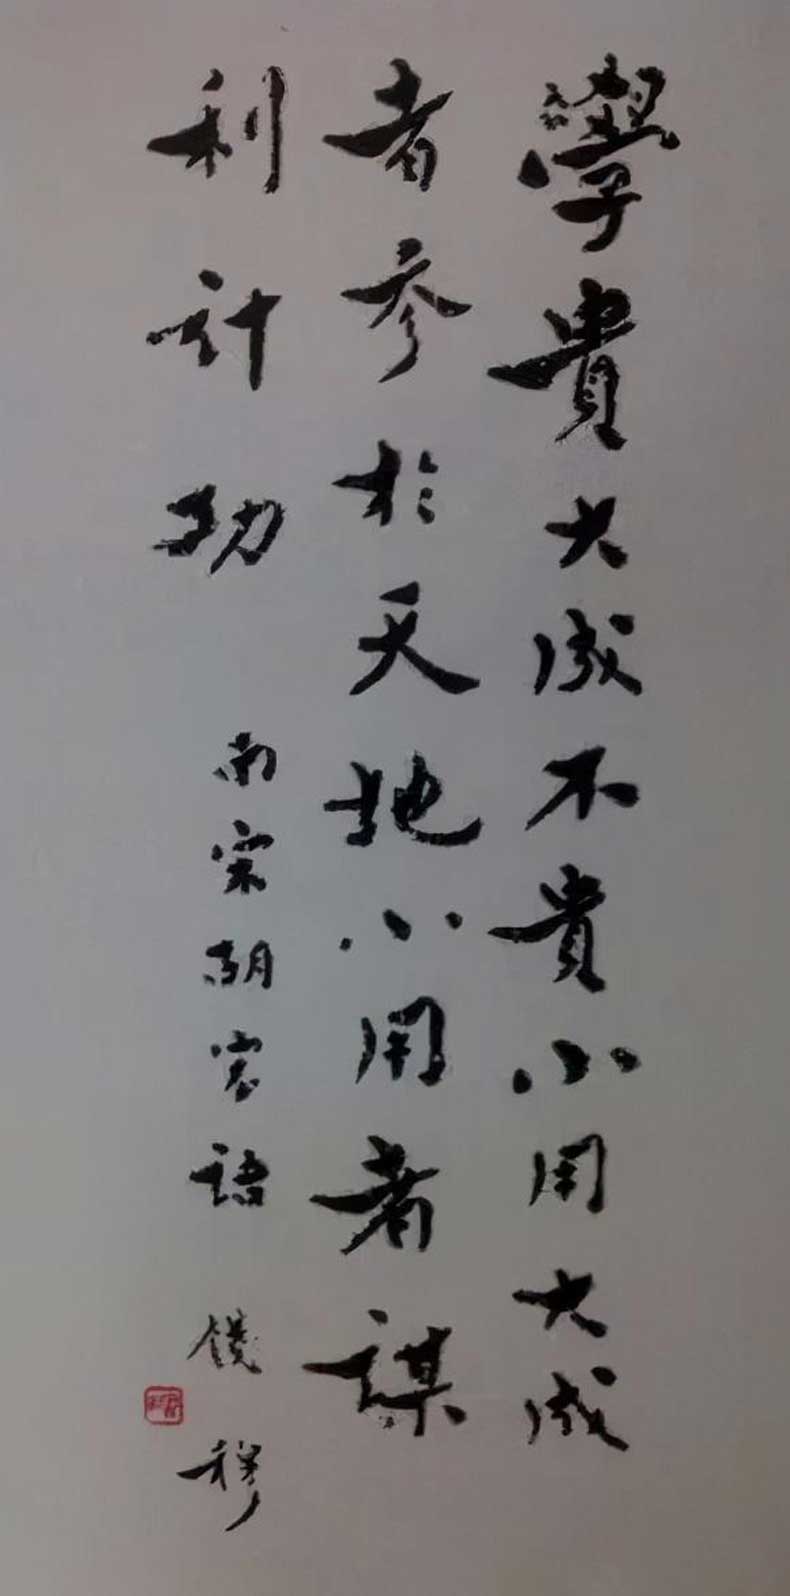 學貴大成不貴小用大成
者參於天地小用者謀
利計功
南宋胡宏語
錢穆